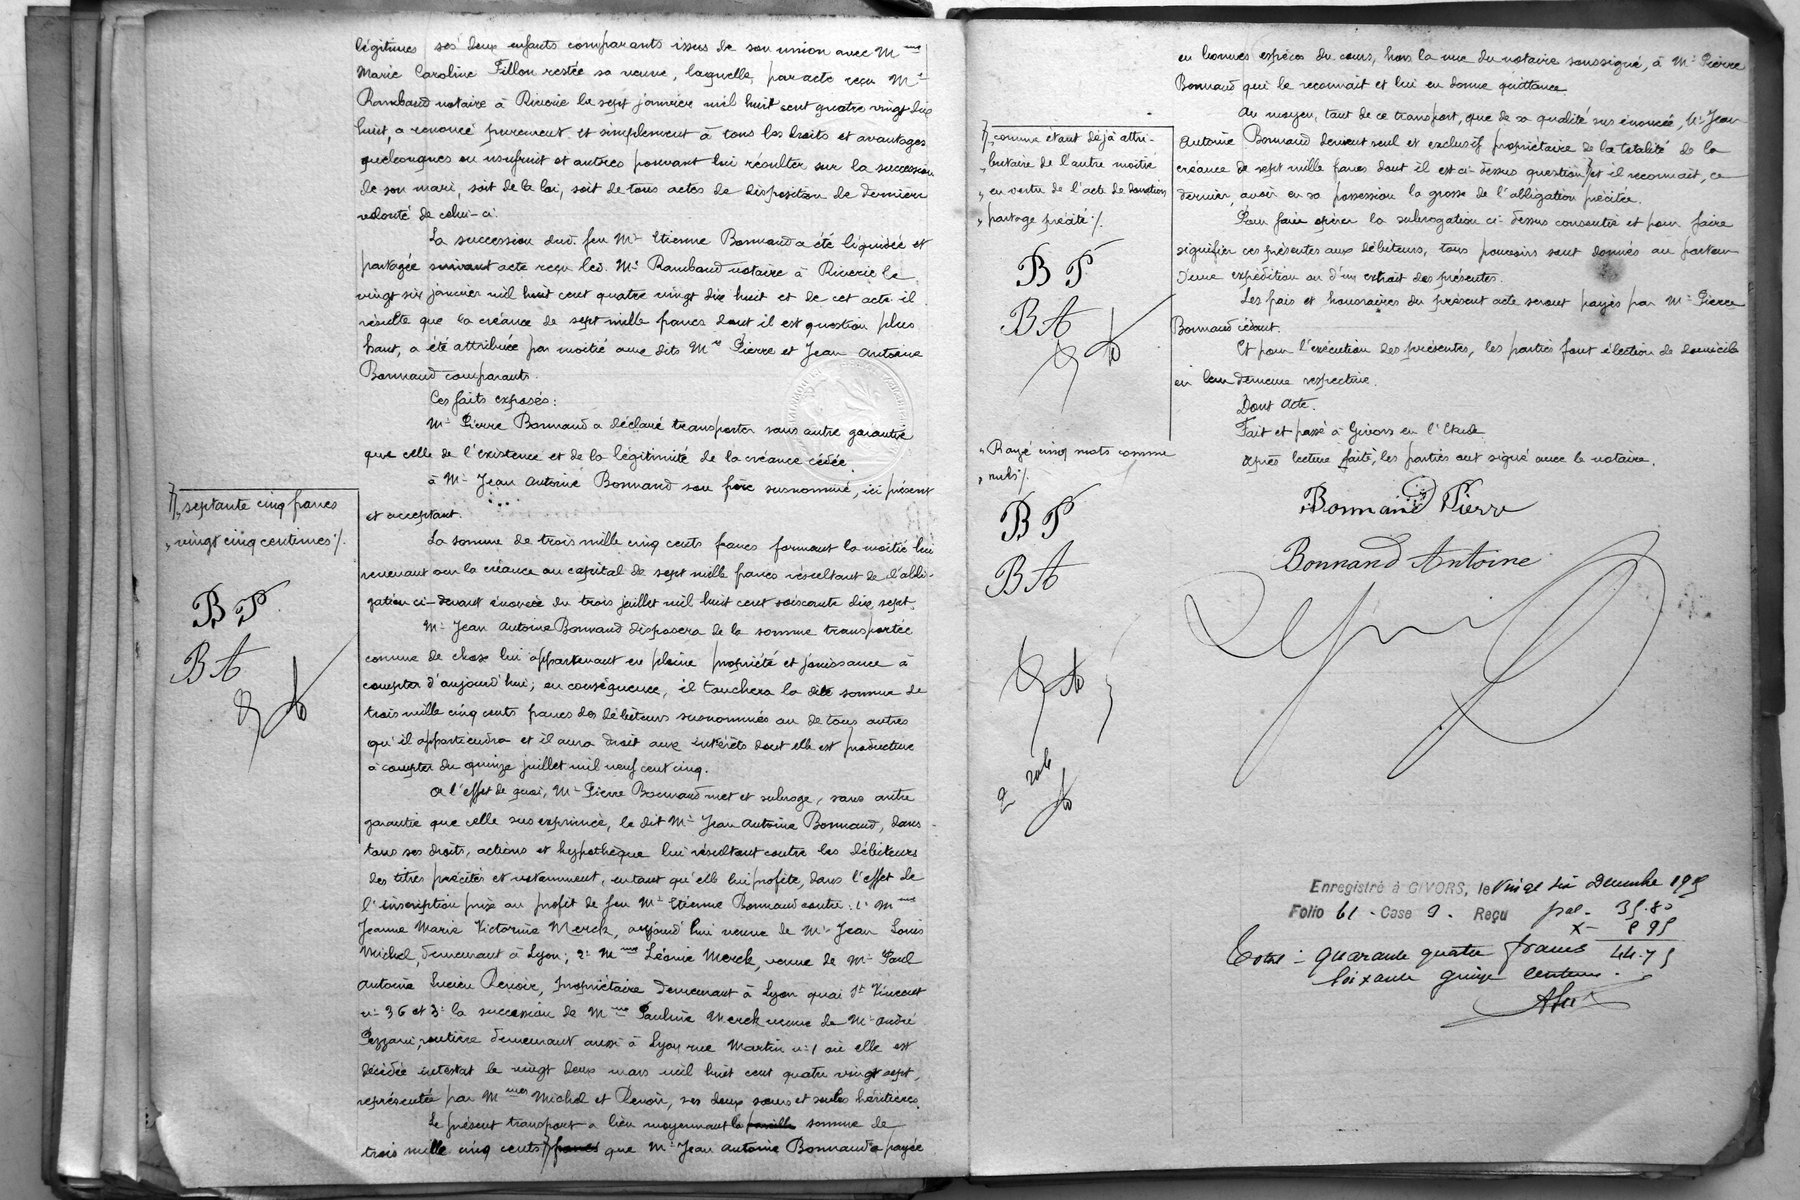 légitimes ses deux enfants comparants issus de son union avec Mme
Marie Caroline Fillon restée sa veuve, laquelle, par acte reçu Me
Rambaud notaire à Riverie le sept janvier mil huit cent quatre vingt dix
huit, a renoncé purement et simplement à tous les droits et avantages
quelconques en usufruit et autres pouvant lui résulter sur la succession
de son mari, soit de la loi, soit de tous actes de disposition de dernière
volonté de celui-ci.
La succession dud. feu Mr Etienne Bonnand a été liquidée et
partagée suivant acte reçu led. Me Rambaud notaire à Riverie le
vingt six janvier mil huit cent quatre vingt dix huit et de cet acte il
résulte que la créance de sept mille francs dont il est question plus
haut, a été attribuée par moitié aux dits Mrs Pierre et Jean Antoine
Bonnand comparants.
Ces faits exposés:
Mr Pierre Bonnand a déclaré transporter sans autre garantie
que celle de l'existence et de la légitimité de la créance cédée.
à Mr Jean Antoine Bonnand son frère susnommé, ici présent
et acceptant.
La somme de trois mille cinq cents francs formant la moitié lui
revenant sur la créance au capital de sept mille francs résultant de l'obli-
gation ci-devant énoncée du trois juillet mil huit cent soixante dix sept.
Mr Jean Antoine Bonnand disposera de la somme transportée
comme de chose lui appartenant en pleine propriété et jouissance à
compter d'aujourd'hui; en conséquence, il touchera la dite somme de
trois mille cinq cents francs des débiteurs susnommés ou de tous autres
qu'il appartiendra et il aura droit aux intérêts dont elle est productive
à compter du quinze juillet mil neuf cent cinq.
A l'effet de quoi, Mr Pierre Bonnand met et subroge, sans autre
garantie que celle sus exprimée, le dit Mr Jean Antoine Bonnand, dans
tous ses droits, actions et hypothèque lui résultant contre les débiteurs
des titres précités et notamment, en tant qu'elle lui profite, dans l'effet de
l'inscription prise au profit de feu Mr Etienne Bonnand contre: 1° Mme
Jeanne Marie Victorine Merck, aujourd'hui veuve de Mr Jean Louis
Michel, demeurant à Lyon; 2° Mme Léonie Merck, veuve de Mr Paul
Antoine Lucien Renoir, propriétaire demeurant à Lyon quai St Vincent
n° 36 et 3° la succession de Mme Pauline Merck veuve de Mr André
Pezzani, rentière demeurant aussi à Lyon rue Martin n° 1 où elle est
décédée intestat le vingt deux mars mil huit cent quatre vingt sept,
représentée par Mmes Michel et Renoir, ses deux sœurs et seules héritières.
Le présent transport a lieu moyennant la pareille somme de
trois mille cinq cents francs que Mr Jean Antoine Bonnand a payée
septante cinq francs
vingt cinq centimes /.
B P
B A
en bonnes espèces du cours, hors la vue du notaire soussigné, à Mr Pierre
Bonnand qui le reconnait et lui en donne quittance
Au moyen, tant de ce transport, que de sa qualité sus énoncée, Mr Jean
Antoine Bonnand devient seul et exclusif propriétaire de la totalité de la
créance de sept mille francs dont il est ci-dessus question et il reconnait, ce
dernier, avoir en sa possession la grosse de l'obligation précitée.
Pour faire opérer la subrogation ci-dessus consentie et pour faire
signifier ces présentes aux débiteurs, tous pouvoirs sont donnés au porteur
d'une expédition ou d'un extrait des présentes.
Les frais et honoraires du présent acte seront payés par Mr Pierre
Bonnand cédant.
Et pour l'exécution des présentes, les parties font élection de domicile
en leur demeure respective.
Dont acte.
Fait et passé à Givors en l'Etude
Après lecture faite, les parties ont signé avec le notaire.
comme étant déjà attri-
butaire de l'autre moitié
en vertu de l'acte de donation
partage précité /.
B P
B A
Rayé cinq mots comme
nuls /.
B P
B A
Bonnand Pierre
Bonnand Antoine
Enregistré à GIVORS, le vingt six Décembre 1905
Folio 61 - Case 9. Reçu
35.80
8 95
44.75
Total : quarante quatre francs
soixante quinze centimes.